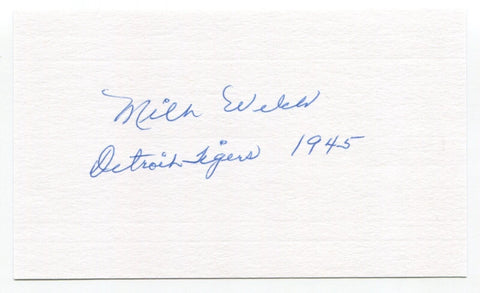 Milt Welch
Detroit Tigers 1945